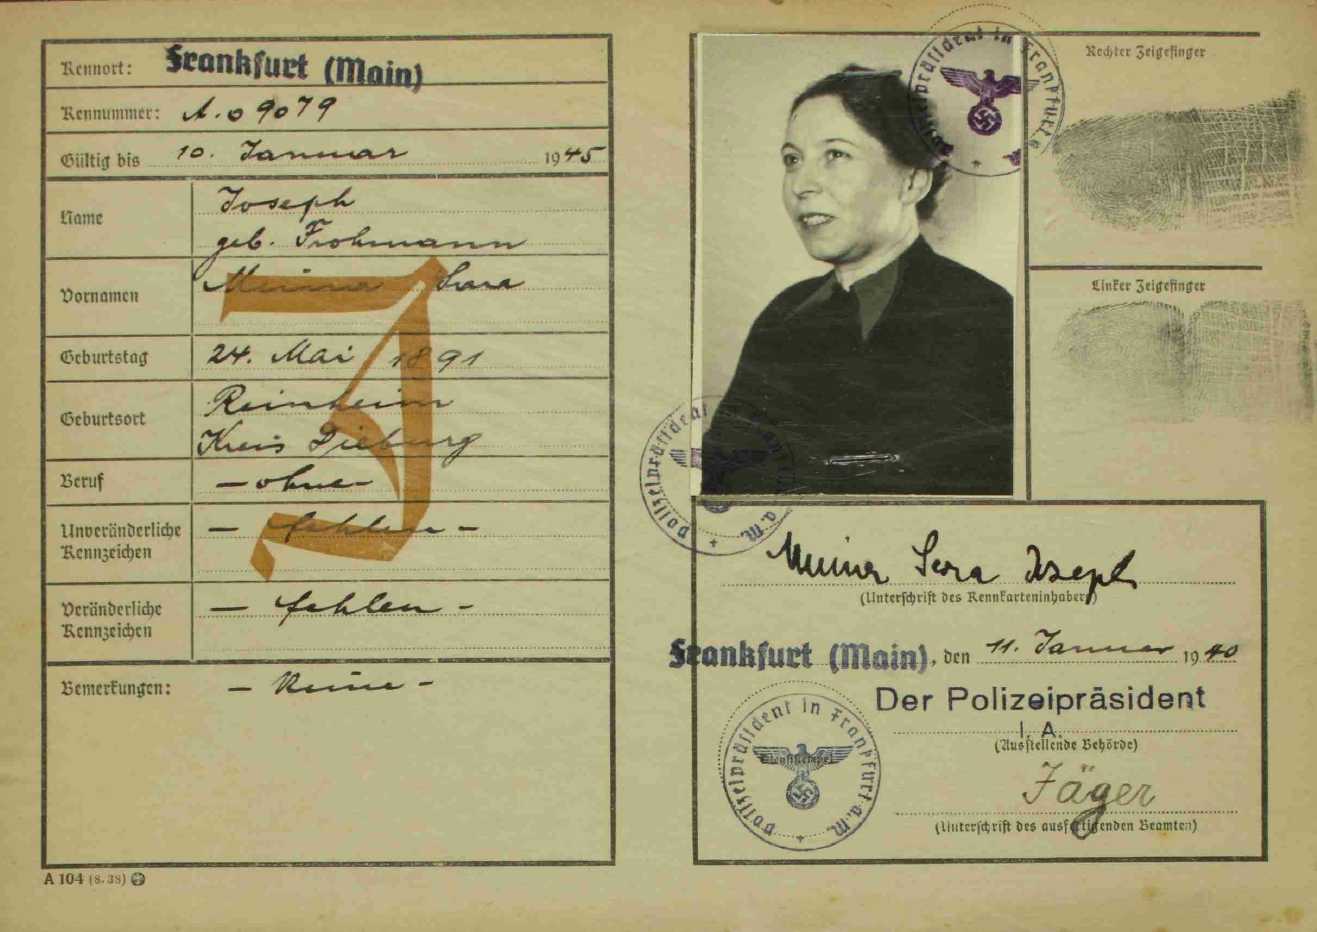 Kennort: Frankfurt (Main)
Kennummer: A. 09079
Gültig bis 10. Januar 1945
Name Joseph
geb. Frohmann
Vornamen Meina Sara
J
Geburtstag 24. Mai 1891
Geburtsort Reinheim
Kreis Dieburg
Beruf - ohne -
Unveränderliche Kennzeichen - fehlen -
Veränderliche Kennzeichen - fehlen -
Bemerkungen: - Keine -
A 104 (8. 38)
Polizeipräsident in Frankfurt
Rechter Zeigefinger
Linker Zeigefinger
Polizeipräsident in Frankfurt a. M.
Meina Sara Joseph
(Unterschrift des Kennkarteninhabers)
Frankfurt (Main), den 11. Januar 1940
Der Polizeipräsident
I. A.
(Ausstellende Behörde)
Polizeipräsident in Frankfurt a. M.
Jäger
(Unterschrift des ausfertigenden Beamten)